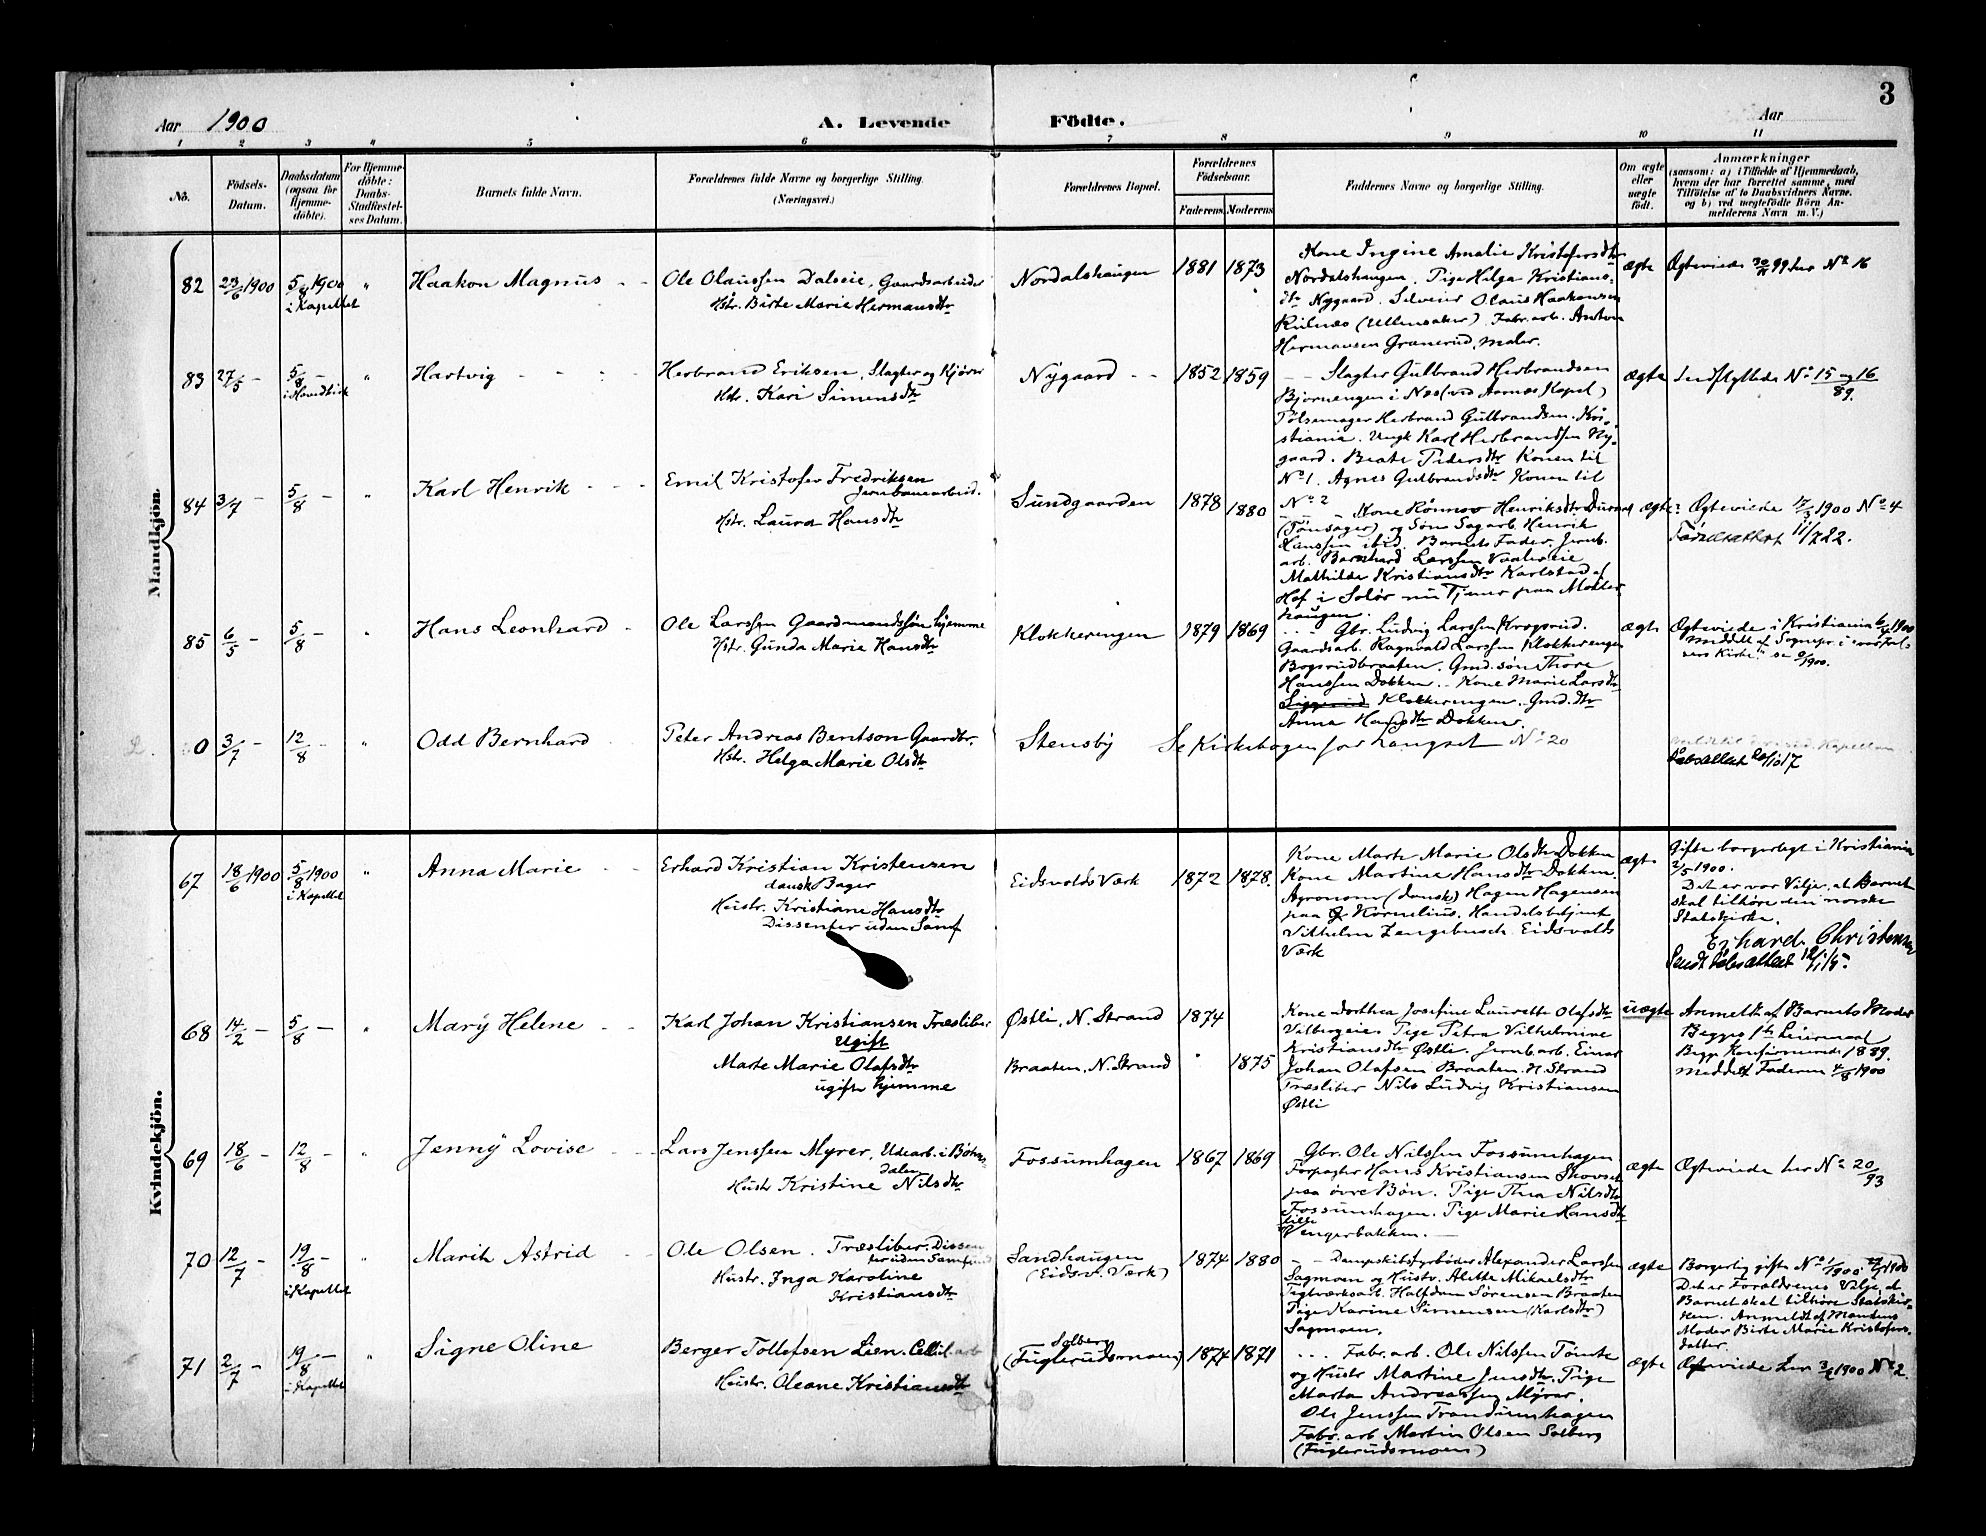 3
Aar 1900
A. Levende Födte.
Aar
1 2 3 4 5 6 7 8 9 10 11
No.
Födsels-Datum.
Daabsdatum (ogsaa for Hjemme-döbte).
For Hjemme-döbte: Daabs-Stadfæstel-ses Datum.
Barnets fulde Navn.
Forældrenes fulde Navne og borgerlige Stilling. (Næringsvei.)
Forældrenes Bopæl.
Forældrenes Födselsaar.
Faderens Moderens
Faddernes Navne og borgerlige Stilling.
Om ægte eller uægte födt.
Anmærkninger
(saasom: a) i Tilfælde af Hjemmedaab,
hvem der har forrettet samme, med
Tilföielse af to Daabsvidners Navne.
og b) ved uægtefödte Börn An-
melderens Navn m. V.)
Mandkjön.
82 23/6 1900 5/8 1900 i Kapellet " Haakon Magnus
Ole Olaussen Dalseie, Gaardsarbeider
Hstr. Birte Marie Hermansdtr
Nordalshaugen 1881 1873
Kone Ingine Amalie Kristofersdtr
Nordalshaugen. Pige Helga Kristians-
dtr Nygaard. Selveier Olaus Haakensen
(Ullensaker) Fabr. arb. Anton
Hermansen Granerud, maler.
ægte Ægteviede 99 her No 16
83 27/5 - 5/8 - " Hartvig
Herbrand Eriksen, Slagter og Kjører
Hstr. Kari Simensdtr
Nygaard 1852 1859
Slagter Gulbrand Herbrandsen
Bjørnengen i Nes (ved Aarnes Kapel)
Pølsemager Herbrand Gulbrandsen. Kri-
stiania. Ungk Karl Herbrandsen Ny-
gaard. Beate Pedersdtr Konen til
No 1. Agnes Gulbrandsdtr Konen til
No 2
ægte Indflyttede No 15 og 16/89.
84 3/7 - 5/8 - " Karl Henrik
Emil Kristofer Fredriksen
Jernbanearbeid.
Hstr. Laura Hansdtr
Sundgaarden 1878 1880
Kone Rønnov Henriksdtr
(Tønsager) og Søn Sagarb. Henrik
Hanssen ibid. Barnets Fader. Jernb.
arb. Bernhard Larssen
Mathilde Kristiansdtr Karlstad af
Hof i Solør nu Tjener paa Mokter
haugen.
ægte Ægteviede 17/3 1900 No 4
Fødselsattest 11/7 22.
85 6/5 - 5/8 - " Hans Leonhard
Ole Larssen Gaardmandssøn hjemme
Hstr. Gunda Marie Hansdtr
Klokkerengen 1879 1869
Gbr. Ludvig Larssen Krogsrud.
Gaardsarb. Ragnvald Larssen Klokkerengen
Bogsrudbraaten. Gmd. søn Thore
Hanssen Dokken. Kone Marie Larsdtr
Klokkerengen. Gmd. dtr
Anna Hansdtr Dokken.
ægte Ægteviede i Kristiania 1900
meddelt af Sognepr. i
Kirke
0 3/7 - 12/8 - " Odd Bernhard
Peter Andreas Bentson Gaardbr.
Hstr. Helga Marie Olsdtr
Stensby Se Kirkebogen for Langset No 20
Daabsattest 20/10 17
Kvindekjön.
67 18/6 1900 5/8 1900 i Kapellet " Anna Marie
Erhard Kristian Kristensen
dansk Bager
Hustr. Kristiane Hansdtr
Dissenter uden Samf
Eidsvolds Værk 1872 1878.
Kone Marte Marie Olsdtr Dokken
Kone Martine Hansdtr Dokken.
Agronom (dansk) Hagen Hagensen
paa Kornelius. Handelsbetjent
Vilhelm Lengebusch. Eidsvolds
Værk
ægte Gifte borgerligt i Kristiania
2/5 1900.
Det er vor Vilje, at Barnet
skal tilhøre den norske
Statskirke.
Erhard Christensen
Sendt Daabsattest 12/1 15.
68 14/2 - 5/8 - " Mary Helene
Karl Johan Kristiansen Træsliber
Ugift
Marte Marie Olafsdtr
ugifte hjemme
Østli, N. Strand 1874
Braaten, N. Strand " 1875
Kone Dorthea Josefine Laurette Olafsdtr
Vilbergeie. Pige Petra Vilhelmine
Kristiansdtr Østli. Jernb. arb. Einar
Johan Olafsen Braaten. N. Strand
Træsliber Nils Ludvig Kristiansen
Østli
uægte Anmeldt af Barnets Moder
Begges 1ste Leiermaal
Begge Konfirmerede 1889.
meddelt Faderen 4/8 1900
69 18/6 - 12/8 - " Jenny Lovise
Lars Jenssen Myrer, Udearb. i Bøhn-
dalen
Hustr Kristine Nilsdtr
Fossumhagen 1867 1869
Gbr. Ole Nilssen Fossumhagen
Forpagter Hans Kristiansen
paa øvre Bøn. Pige Thea Nilsdtr
Fossumhagen. Pige Marie Hansdtr
lille
Vengerbakken.
ægte Ægteviede her No 20/93
70 12/7 - 19/8 - i Kapellet " Marih Astrid
Ole Olsen. Træsliber. Dissen
ter uden Samfund
Hustr. Inga Karoline
Kristiansdtr
Sandhaugen
(Eidsv. Værk)
1874 1880
Dampskibsfyrbøder Alexander Larssen
Sagmoen og Hustr. Alette Mikaelsdtr
Teglværksarb. Halfdan Sørensen Braaten
Pige Karine Simensen (Karlsdtr)
Sagmoen.
ægte Borgerlig gifte No 1/1900 1900
Det er Forældrenes Vilje, at
Barnet skal tilhøre Statskir-
ken. Anmeldt af Mandens
Moder Birte Marie Kristofers-
datter.
71 2/7 - 19/8 - i Kapellet " Signe Oline
Berger Tollefsen Lien. Cellul. arb
Hustr. Oleane Kristiansdtr
Solberg
(Fuglerudsmoen) 1874 1871
Fabr. arb. Ole Nilssen Tømte
og Hustr Martine Jensdtr. Pige
Marta Andreassen Myrer.
Ole Jenssen Trandumhagen
Fabr. arb Martin Olsen Solberg
(Fuglerudsmoen)
ægte Ægteviede her 1900 No 2.